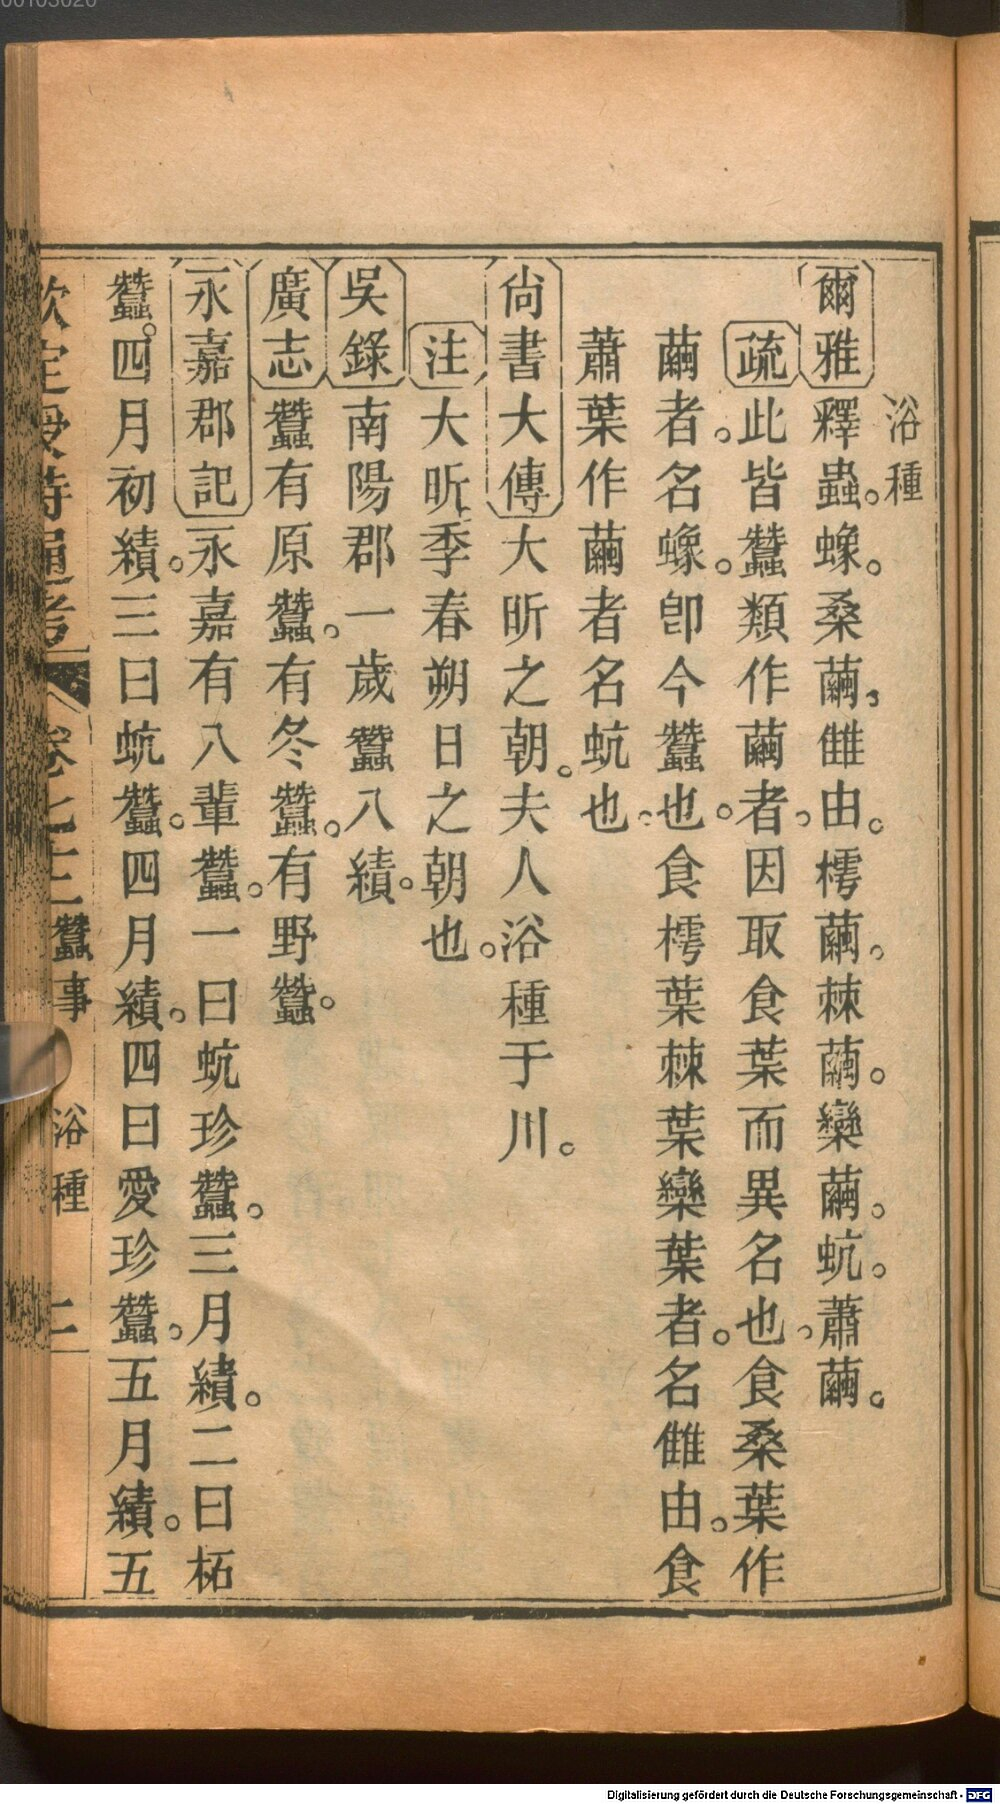 浴種
爾雅釋蟲。蟓。桑繭。雔由。樗繭。棘繭。欒繭。蚢。蕭繭。
疏此皆蠶類作繭者。因取食葉而異名也。食桑葉作
繭者。名蟓。卽今蠶也。食樗葉棘葉欒葉者。名雔由。食
蕭葉作繭者名蚢也。
尙書大傳大昕之朝。夫人浴種于川。
注大昕季春朔日之朝也。
吳錄南陽郡一歲蠶八績。
廣志蠶有原蠶。有冬蠶。有野蠶。
永嘉郡記永嘉有八輩蠶。一曰蚢珍蠶。三月績。二曰柘
蠶。四月初績。三曰蚢蠶。四月績。四曰愛珍蠶。五月績。五
欽定授時通考 卷七十二 蠶事 浴種 二
Digitalisierung gefördert durch die Deutsche Forschungsgemeinschaft - DFG